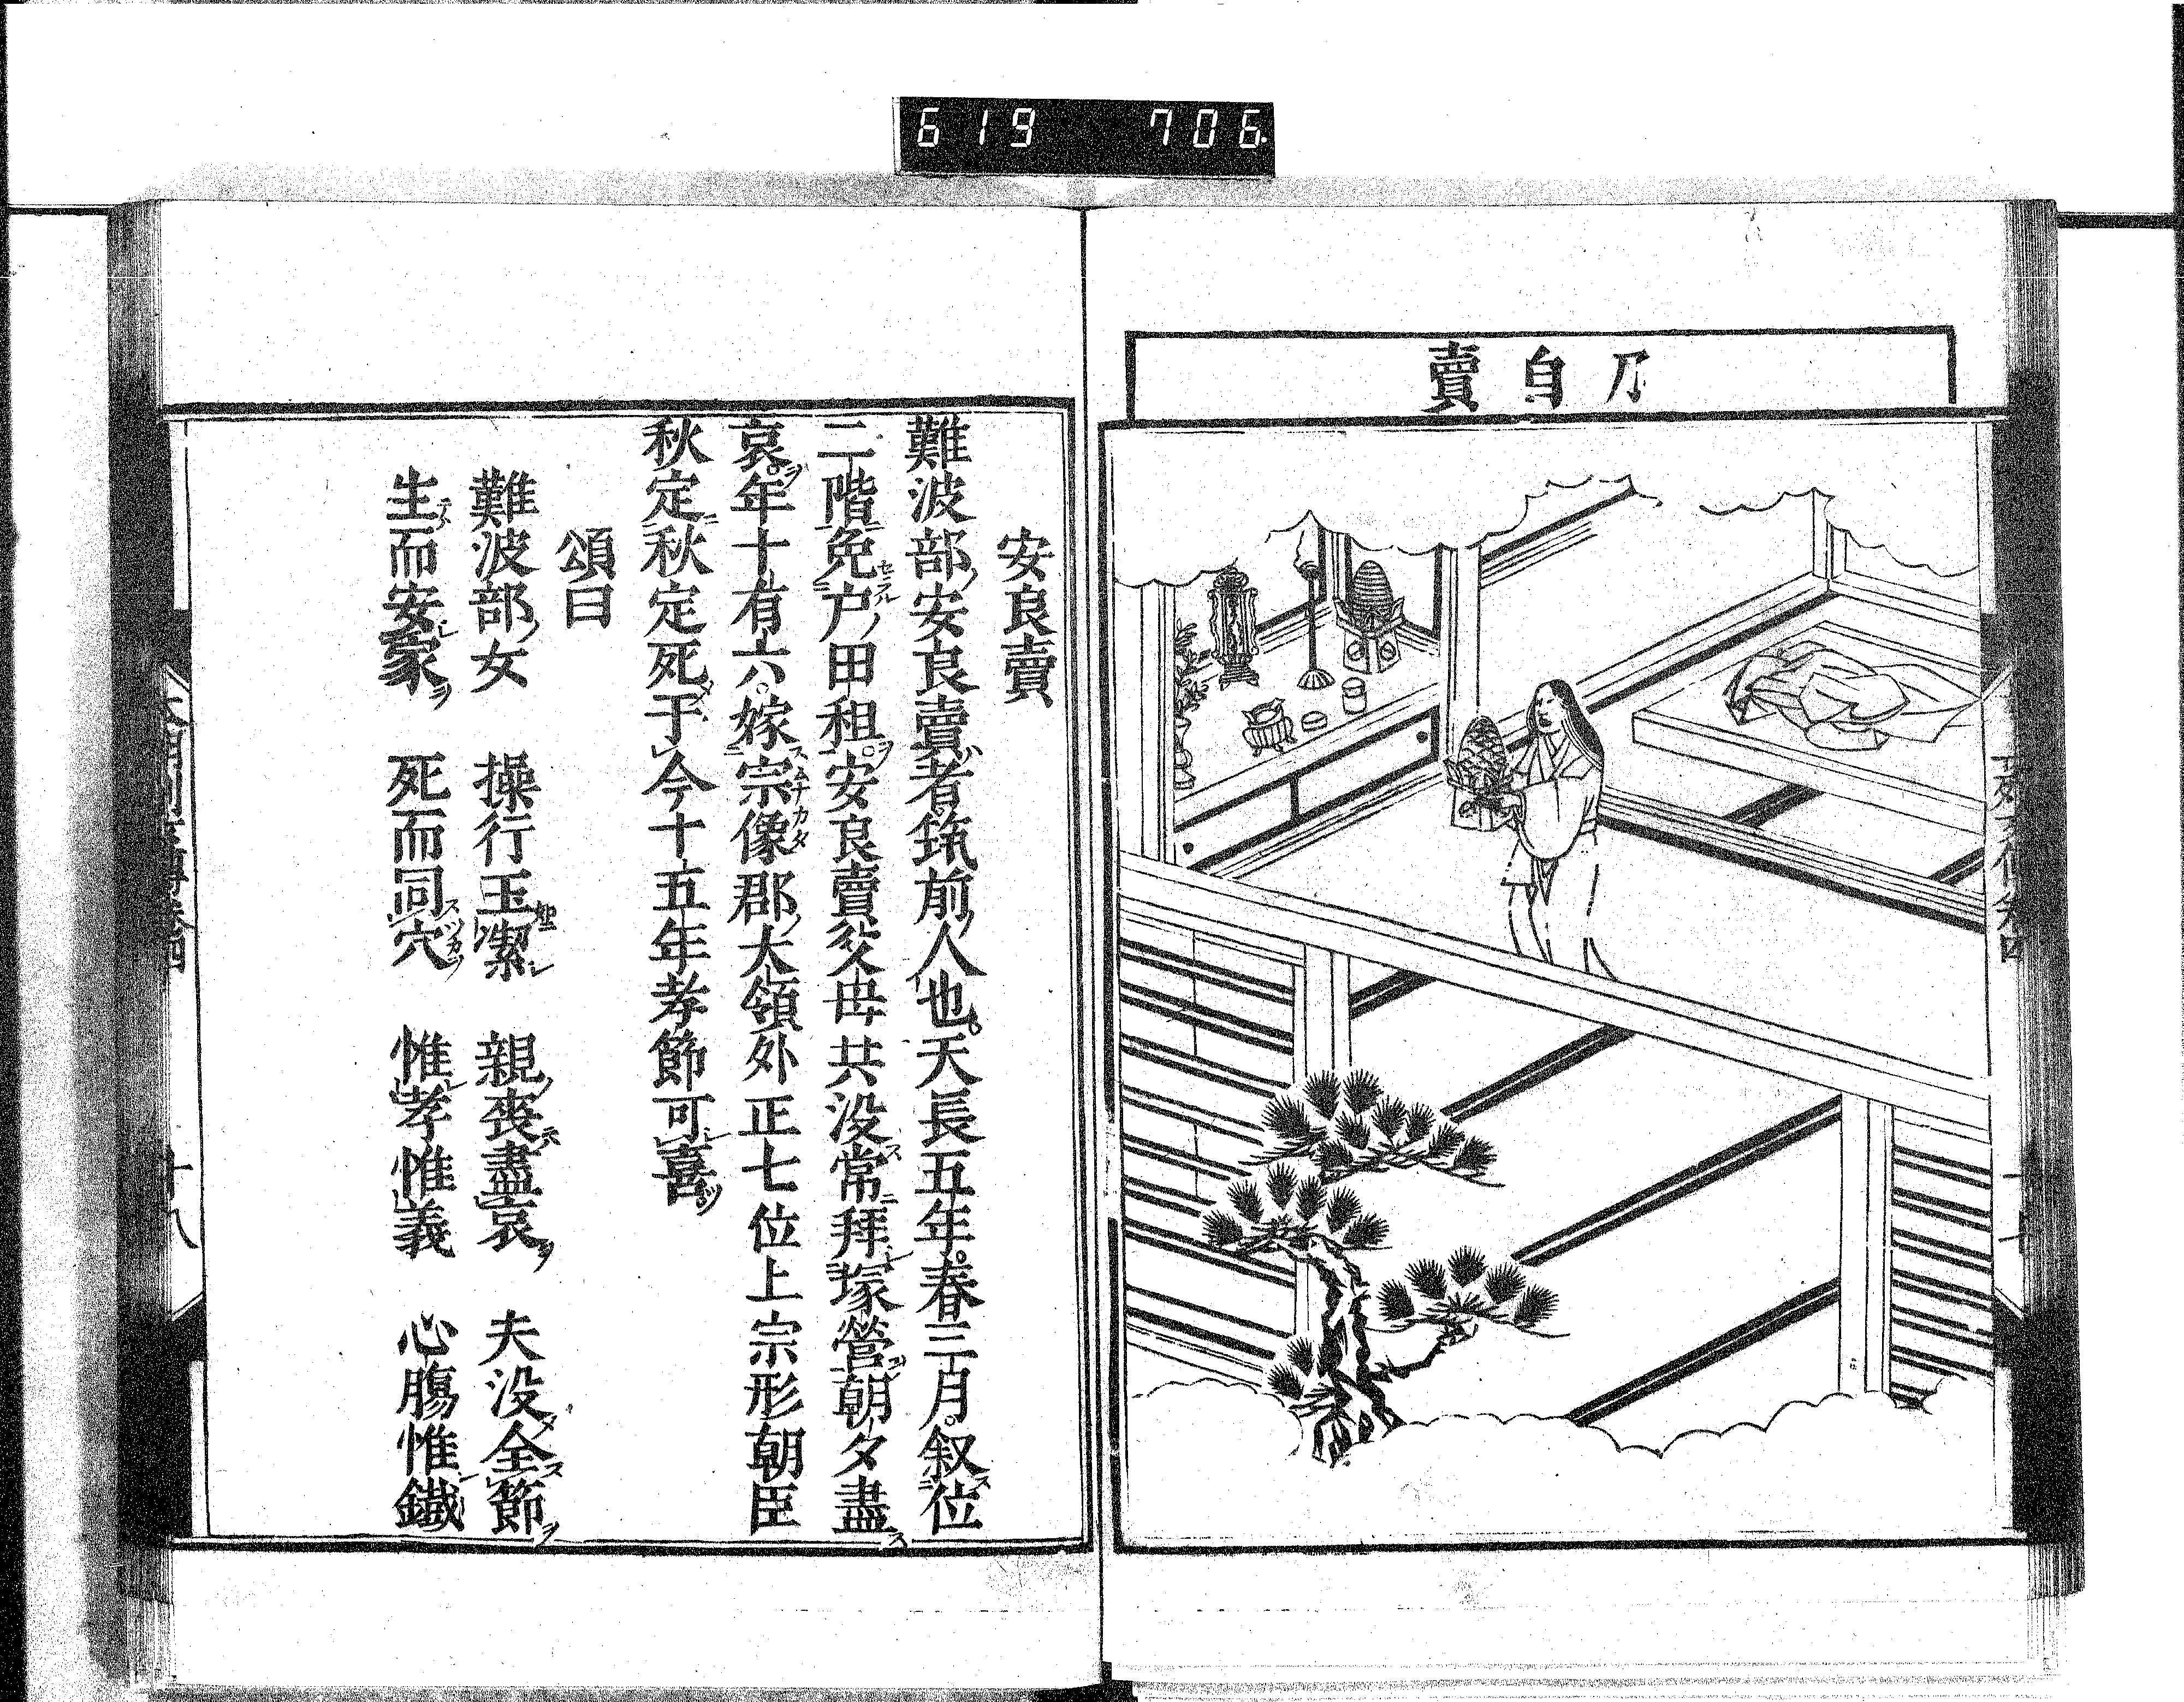 619 706
刀自賣
安良賣
難波部ノ安良賣ハ者筑前ノ人也。天長五年。春三月。叙位
二階免戸ノ田租ヲ。安良賣父母共没常拜塚營朝夕盡
哀ヲ。年十有六。嫁宗像郡ノ大領外正七位上宗形朝臣
秋定ニ秋定死于今十五年孝節可喜
頌曰
難波部ノ女 操行玉潔 親ノ喪盡哀ヲ 夫没全節ヲ
生而安家ヲ 死而同穴 惟孝惟義 心膓惟鐵
十八